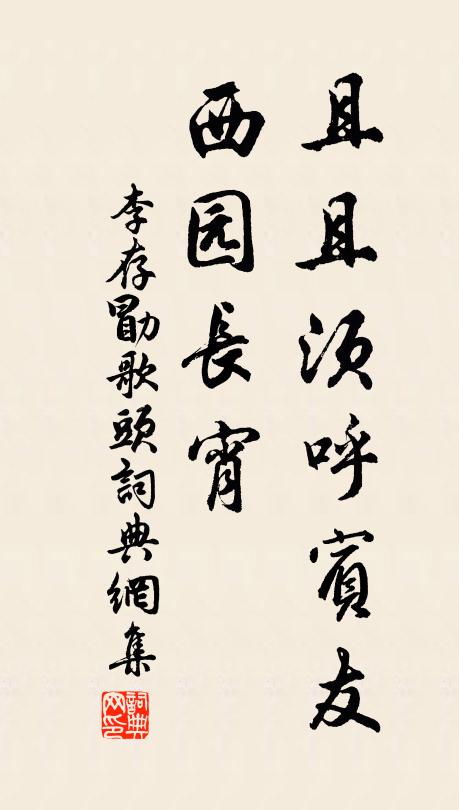 且且须呼賓友
西园長宵
李存勖歌頭詞典網集
詞典
网印